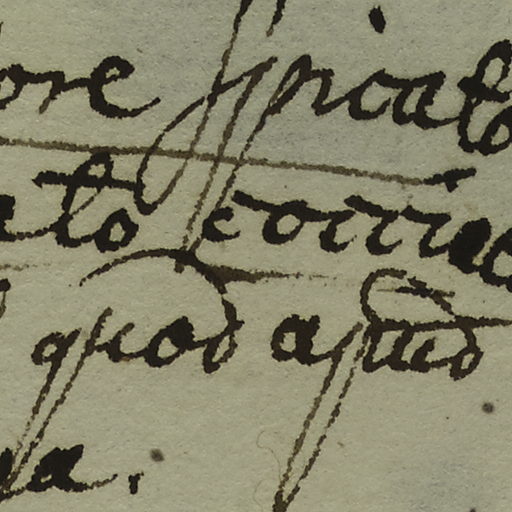 ore spicato
ato coriac
quod apud
a.